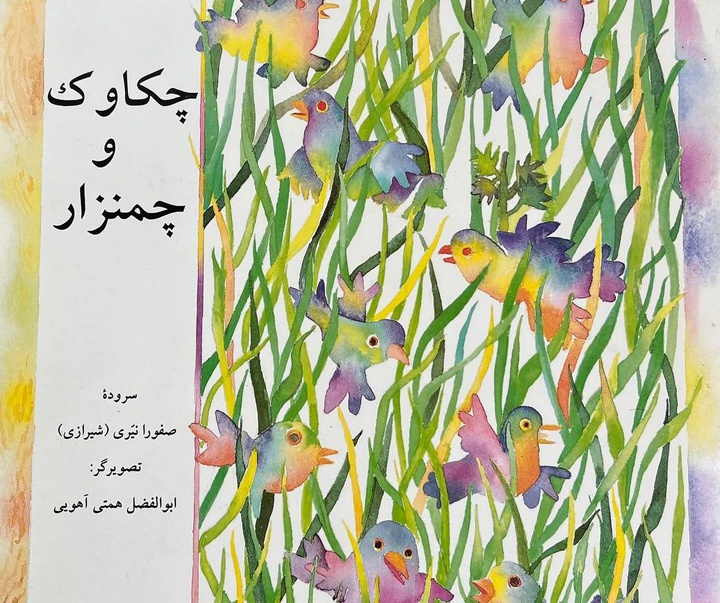 چکاوک
و
چمنزار
سرودهٔ
صفورا نیّری (شیرازی)
تصویرگر:
ابوالفضل همتی آهویی